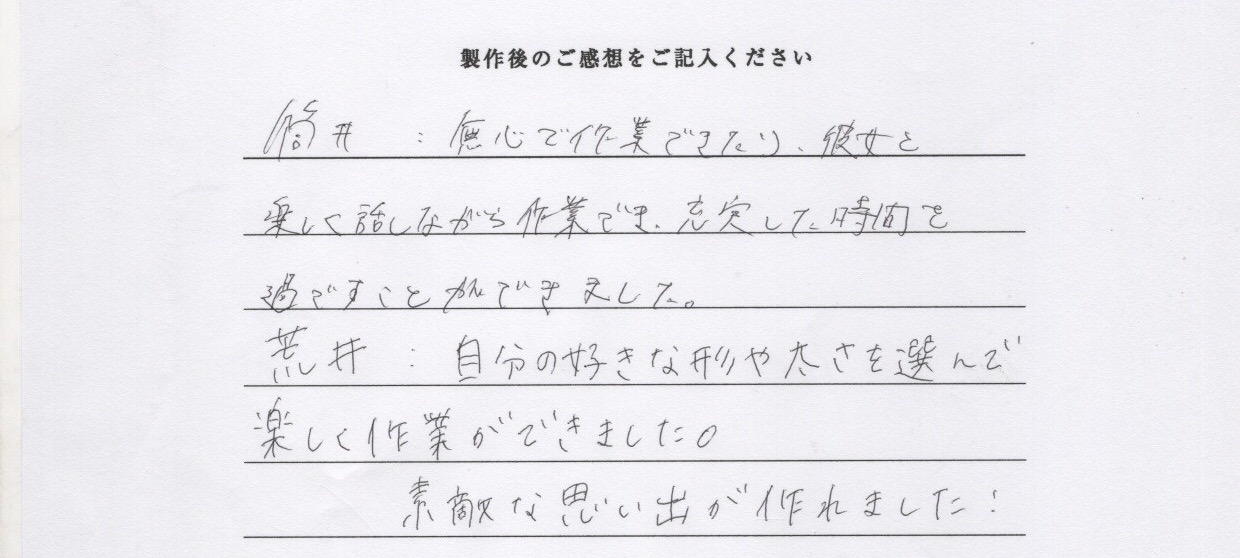 製作後のご感想をご記入ください
筒井 : 無心で作業できたり、彼女と
楽しく話しながら作業でき、充実した時間を
過ごすことができました。
荒井 : 自分の好きな形や太さを選んで
楽しく作業ができました。
素敵な思い出が作れました!